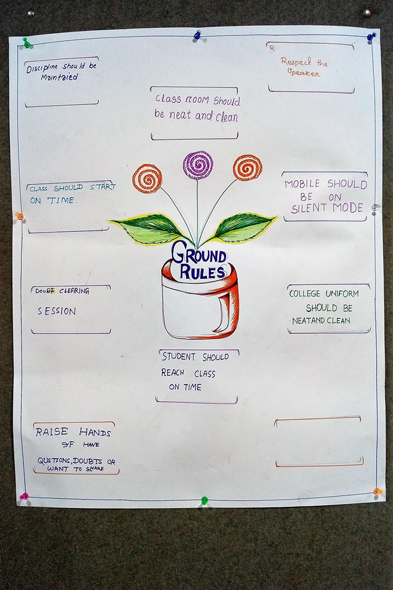 Discipline should be
Maintaied
Class room should
be neat and clean
Respect the
Speaker
CLASS SHOULD START
ON TIME
MOBILE SHOULD
BE ON
SILENT MODE
GROUND
RULES
DOUBT CLEARING
SESSION
COLLEGE UNIFORM
SHOULD BE
NEAT AND CLEAN
STUDENT SHOULD
REACH CLASS
ON TIME
RAISE HANDS
IF HAVE
QUTIONS, DOUBTS OR
WANT TO SHARE